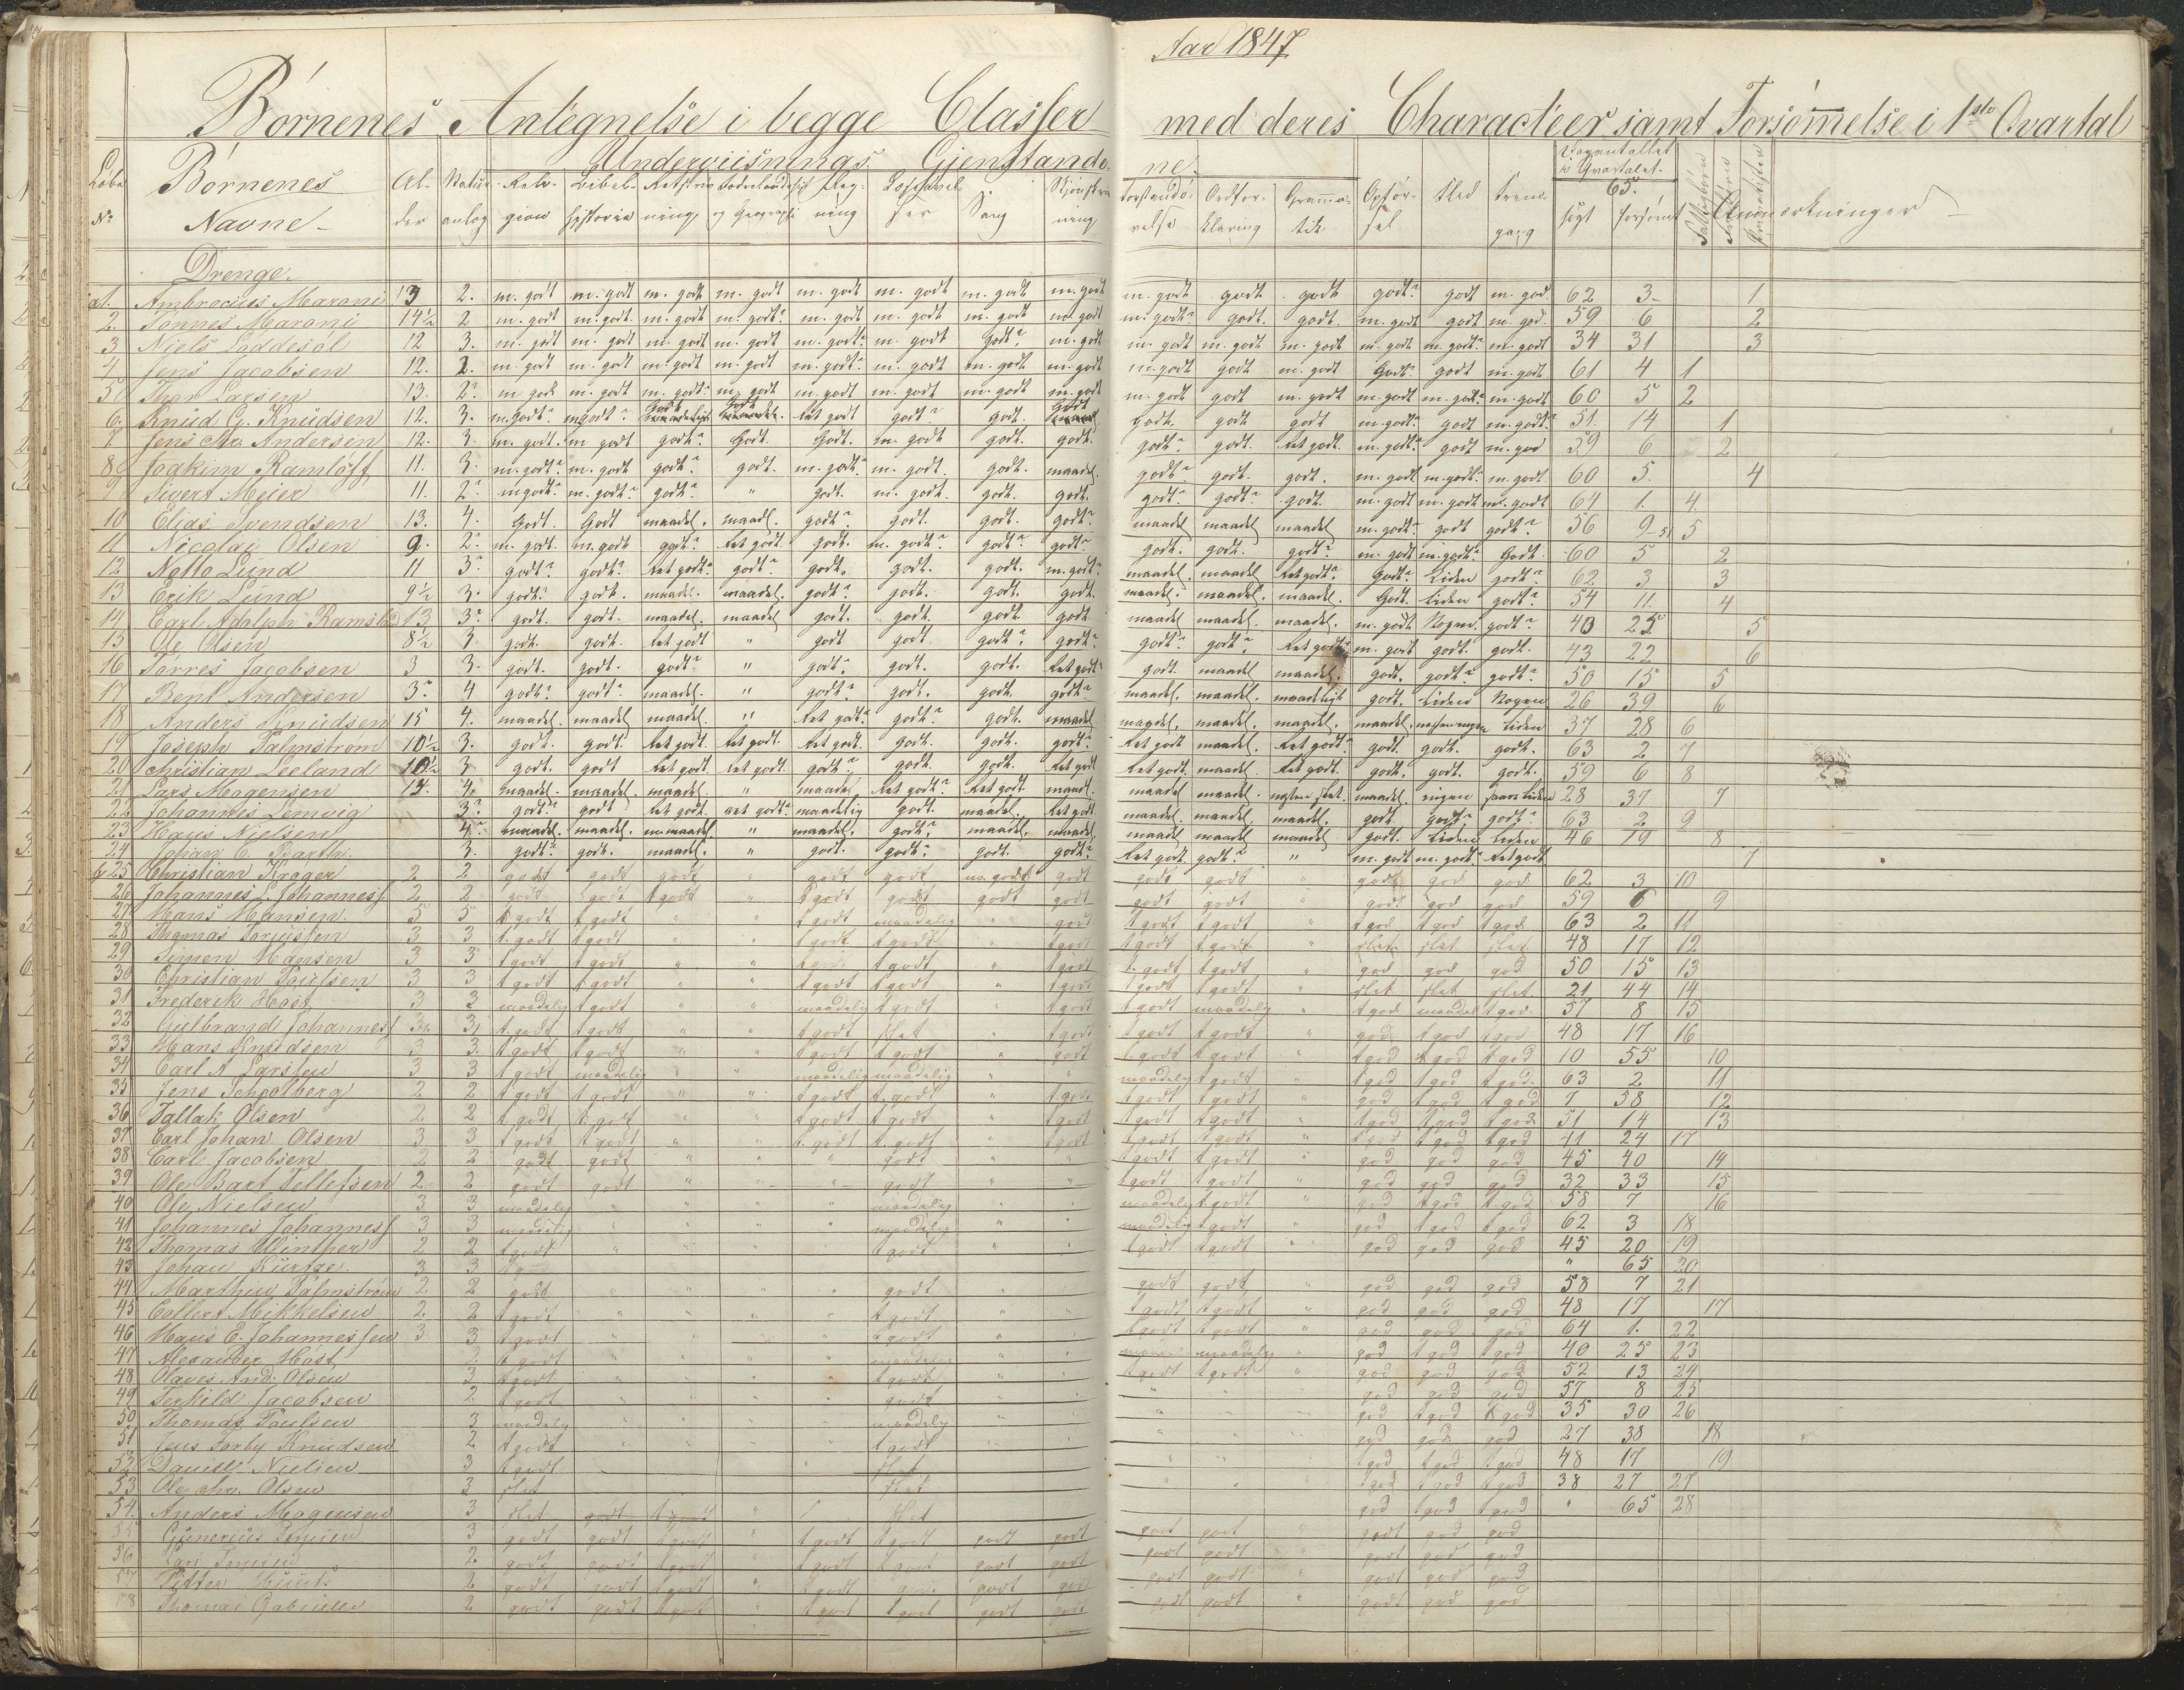 Aar 1847
Börnenes Antegnelse i begge Classer med deres Characteer samt Forsömmelse i 1ste Qvartal
Underviisnings Gjenstande. ne.
Löbe No Börnenes Navne Al-der Natur-anlag Reli-gion Bibel-historie Retskriv-ning og Geographi Reg-ning Sang Skjönskriv-ning Forstandsö-velse Ordfor-klaring Gramma-tik Opför-sel Flid Frem-gang i Qvartalet. 65. sögt forsömt Anmerkninger
Drenge.
1. Ambrosius Marani 13 2. m. godt m. godt m. godt m. godt m. godt m. godt m. godt m. godt m. godt godt godt godt? godt m. god 62 3 1
2. Tönnes Marani 14½ 2 m. godt m. godt. m. godt m. godt? m. godt m. godt m. godt m. godt m. godt? godt. godt. m. godt godt m. god. 59 6 2
3 Niels Loddesöl 12 3. m. godt m. godt m. godt m. godt m. godt? m. godt godt? m. godt m. godt m. godt m. godt m. godt m. godt? m. godt 34 31 3
4 Jens Jacobsen 12. 2. m. godt m. godt m. godt m. godt m. godt? m. godt m. godt m. godt m. godt godt m. godt Godt? godt m. godt 61 4 1
5 Thor Larsen 13. 2? m. godt m. godt m. godt? m. godt m. godt m. godt m. godt m. godt m. godt godt m. godt m. godt m. godt? m. godt 60 5 2
6. Knud G. Knudsen 12. 3. m. godt? m. godt? godt godt Ret godt godt? godt. Godt godt. godt godt m. godt? godt m. godt? 51. 14 1
7. Jens Chr. Andersen 12. 3 m. godt. m godt godt? Godt Godt. m. godt godt. godt. godt? godt. Ret godt. m. godt? godt m. god 59 6 2
8 Joakim Ramlöff 11. 3. m. godt? m. godt godt? godt. m. godt? m. godt. godt. maadel. godt? godt. godt. m. godt m. godt? m. godt 60 5. 4
9 Sivert Meier 11. 2? m godt? m. godt? godt? " godt. m. godt. godt. godt. godt? godt? godt. m. godt m. godt m. godt 64 1. 4.
10 Elias Svendsen 13. 4. Godt. Godt maadel. maadel. godt? godt. godt. godt? maadel maadel maadel m. godt? godt godt? 56 9 5
11 Nicolai Olsen 9. 2? m. godt. m. godt godt? Ret godt. godt. m. godt? godt? godt? godt. godt. godt? m. godt m. godt? Godt. 60 5 2
12 Netto Lund 11 3? godt? godt? Ret godt? godt? godt. godt. godt. m. godt? maadel. maadel Ret godt? godt? Liden godt? 62 3 3
13 Erik Lund 9½ 3. godt? godt. maadel. maadel. godt? godt. godt. godt. maadel. maadel. maadel. Godt. Liden godt? 54 11. 4
14 Carl Adolph Ramslö 13 3? godt. godt. maadel. maadel godt. godt. godt. godt maadel maadel. maadel. m. godt Nogen godt? 40 25 5
15 Ole Olsen 8½ 3. godt. godt. Ret godt " godt godt godt? godt? godt? godt? Ret godt? m. godt godt. godt. 43 22 6
16 Torres Jacobsen 3 3. godt. godt. godt? " godt? godt. godt. Ret godt? godt. maadel maadel. godt. godt? godt? 50 15 5
17 Bent Andersen 3? 4 godt? godt? maadel. " godt? godt. godt. godt? maadel. maadel. maadeligt godt. Liden Nogen 26 39 6
18 Anders Knudsen 15 4. maadel. maadel maadel. " Ret godt? godt? godt. maadel maadel. maadel. maadel. maadel. næsten ingen Liden 37 28 6
19 Joseph Palmström 10½ 3. godt. godt. Ret godt. Ret godt. Ret godt. godt. godt. godt? Ret godt maadel. Ret godt? godt. godt. godt. 63 2 7
20 Christian Leeland 10½ 3 godt. godt Ret godt. Ret godt. godt? godt. godt. Ret godt Ret godt. maadel. Ret godt. godt. godt. godt. 59 6 8
21 Lars Mogensen 13. 4. maadel. maadel. maadel. " maadel. Ret godt? Ret godt. maadel. maadel maadel. næsten slet. maadel. ingen saare Liden 28 37 7
22 Johannis Lemvig 3? godt? godt Ret godt. Ret godt? maadelig godt. maadel. Ret godt. maadel. maadel. maadel. godt. godt? godt? 63 2 9
23 Hans Nielsen 4? maadel. maadel. m. maadel " maadel. godt? maadel. maadel. maadel maadel maadel godt. Liden Liden 46 19 8
24 Johan C. Barth. 3. godt? godt. maadel. " godt. godt? godt. godt? Ret godt. godt? " m. godt m. godt? Ret godt 7
25 Christian Kroger 2 2 godt godt godt " godt godt m. godt godt godt godt " god god god 62 3 10
26 Johannes L. Johanness. 2 2 godt godt t godt " t godt godt godt godt godt godt " god god god 59 6 9
27 Hans Hansen. 5 5 t godt t godt " " t godt maadelig " godt t godt t godt " t god t god t god 63 2 11
28 Thomas Torjusen 3 3 t. godt t godt " " t godt t godt " t godt t godt t godt " slet slet slet 48 17 12
29 Simen Hansen 3 3 t godt t godt " " t godt t godt " t godt t. godt t godt " god god god 50 15 13
30 Christian Poulsen 3 3 t godt t godt " " t godt t godt " t godt t godt t godt " slet slet slet 21 44 14
31 Frederik Höst 3 3 maadelig t godt " " maadelig t godt " t godt t godt maadelig " t god maadel t god 57 8 15
32 Gulbrand Johanness 3. 3, t. godt t godt " " t godt slet " t godt t godt t godt " god t god t god 48 17 16
33 Hans Knudsen 3 3. t godt t godt " " t godt t godt " godt t godt t godt " t god t god t god 10 55 10
34 Carl A Larssen 3 3 t godt maadelig " " maadelig maadelig " " maadelig t godt " t god t god t god 63 2 11
35 Jens Schoolberg 2 2 t godt t godt " " t godt t godt " t godt t godt t godt " god t god t god 7 58 12
36 Tallak Olsen 2 2 t. godt t. godt " " t godt t godt " t godt t godt t godt " t god t god t god 51 14 13
37 Carl Johan Olsen 3 3 t godt t godt " " t. godt t. godt " t godt t godt t godt " t god t god t god 41 24 17
38 Carl Jacobsen 2 2 godt godt " " " godt " " t godt t godt " god god god 45 40 14
39 Ole Bart Tellefsen 2 2 godt godt " " " godt " " t godt t godt " god god god 32 33 15
40 Ole Nielsen 3 3 maadelig " " " " maadelig " " maadelig t. godt " god t god t god 58 7 16
41 Johannes Johanness 3 3 maadelig " " " " maadelig " " maadelig t godt " god t god t god 62 3 18
42 Thomas Winther 2 2 t godt " " " " t godt " " t godt t godt " god god god 45 20 19
43 Johan 3 3 " 65 20
44 Marthin Palmström 2 2 godt " " " " godt " " godt godt " god god god 58 7 21
45 Collert Mikkelsen 2 2 t godt " " " " t godt " " t godt t godt " god god god 48 17 17
46 Hans E. Johannessen 3 3 t godt " " " " t godt " " t godt t godt " god god god 64 1. 22
47 Alexander Höst 3 t godt " " " " maadelig " " maadelig " god t god t god 40 25 23
48 Olaves And. Olsen 3 t godt " " " " t godt " " t godt t godt god god god 52 13 24
49 Terkild Jacobsen 2 t godt " " " " godt " " " god god god 57 8 25
50 Thomas Poulsen 3 maadelig " " " maadelig " " " god t god t god 35 30 26
51 Jens Torby Knudsen 2 t godt " " " t godt " " god god god 27 38 18
52 Daniel Nielsen 3 t godt slet " t god t god t god 48 17 19
53 Ole Chr. Olsen 3 slet slet " t god t god t god 38 27 27
54. Anders Mogensen 3 slet godt t godt " slet god t god t god " 65 28
55 3 godt godt t godt " t godt t godt godt godt godt godt " godt god god
56 2 godt godt t godt " t godt t godt godt godt godt godt " godt god god
2 godt godt t godt " t godt godt godt godt godt godt " godt god god
58 Thomas Gabrielsen 2 godt godt t godt " t godt t godt godt godt godt godt " godt god god